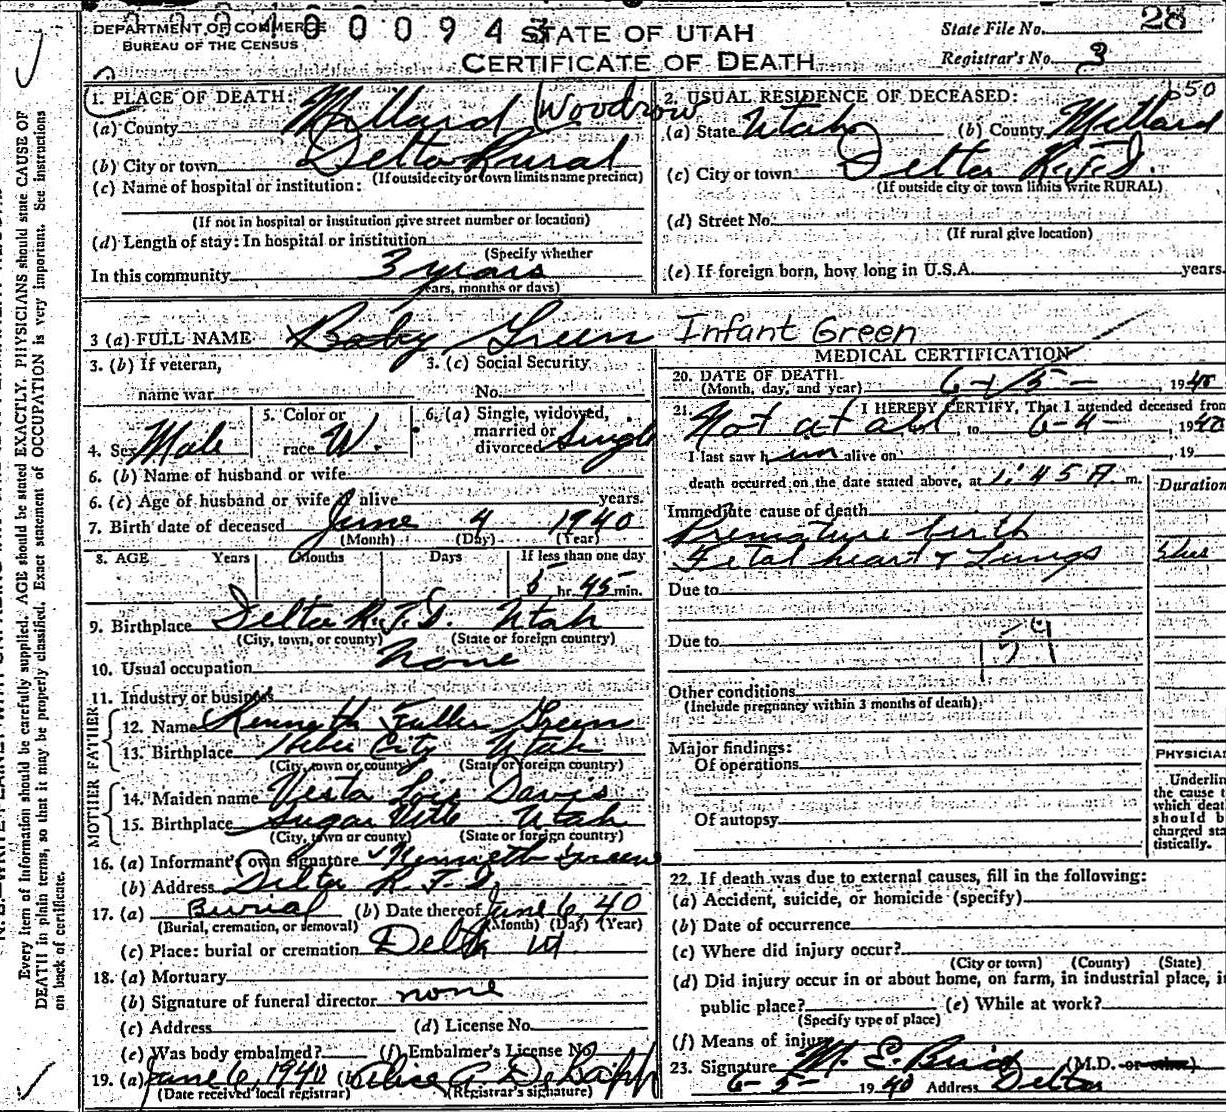 DEPARTMENT OF COMMERCE
BUREAU OF THE CENSUS
0 0 0 9 4 3
STATE OF UTAH
CERTIFICATE OF DEATH
State File No. 28
Registrar's No. 3
1. PLACE OF DEATH:
(a) County Millard Woodrow
(b) City or town Delta Rural
(If outside city or town limits name precinct)
(c) Name of hospital or institution:
(If not in hospital or institution give street number or location)
(d) Length of stay: In hospital or institution
(Specify whether
In this community 3 years
years, months or days)
2. USUAL RESIDENCE OF DECEASED:
(a) State Utah (b) County Millard
(c) City or town Delta R.F.D.
(If outside city or town limits write RURAL)
(d) Street No.
(If rural give location)
(e) If foreign born, how long in U.S.A. years.
3 (a) FULL NAME Baby Green Infant Green
3. (b) If veteran,
name war
3. (c) Social Security
No.
4. Sex Male
5. Color or
race W.
6. (a) Single, widowed,
married or
divorced Single
6. (b) Name of husband or wife
6. (c) Age of husband or wife if alive years.
7. Birth date of deceased June 4 1940
(Month) (Day) (Year)
8. AGE Years Months Days If less than one day
5 hr. 45 min.
9. Birthplace Delta R.F.D. Utah
(City, town, or county) (State or foreign country)
10. Usual occupation None
11. Industry or business
FATHER
12. Name Kenneth Fuller Green
13. Birthplace Heber City Utah
(City, town or county) (State or foreign country)
MOTHER
14. Maiden name Vesta Lois Davis
15. Birthplace Sugar Ville Utah
(City, town or county) (State or foreign country)
16. (a) Informant's own signature Kenneth Green
(b) Address Delta R F D
17. (a) Burial (b) Date thereof June 6, 40
(Burial, cremation, or removal) (Month) (Day) (Year)
(c) Place: burial or cremation Delta Ut
18. (a) Mortuary
(b) Signature of funeral director none
(c) Address (d) License No.
(e) Was body embalmed? (f) Embalmer's License No.
19. (a) June 6, 1940 (b) Alice A DeLapp
(Date received local registrar) (Registrar's signature)
MEDICAL CERTIFICATION
20. DATE OF DEATH
(Month, day, and year) 6-5- , 1940
21. I HEREBY CERTIFY, That I attended deceased from
Not at all, to 6-4-, 1940
I last saw him alive on , 19
death occurred on the date stated above, at 1:45 A. m.
Duration
Immediate cause of death
Premature birth
Fetal heart & Lungs
Due to
Due to
159
Other conditions
(Include pregnancy within 3 months of death)
Major findings:
Of operations
Of autopsy
PHYSICIAN
Underline
the cause t
which deat
should b
charged sta
tistically.
22. If death was due to external causes, fill in the following:
(a) Accident, suicide, or homicide (specify)
(b) Date of occurrence
(c) Where did injury occur?
(City or town) (County) (State)
(d) Did injury occur in or about home, on farm, in industrial place, i
public place? (e) While at work?
(Specify type of place)
(f) Means of injury
23. Signature M. E. Bird (M.D. or other)
6-5- 1940 Address Delta
Every item of information should be carefully supplied. AGE should be stated EXACTLY. PHYSICIANS should state CAUSE OF
DEATH in plain terms, so that it may be properly classified. Exact statement of OCCUPATION is very important. See instructions
on back of certificate.